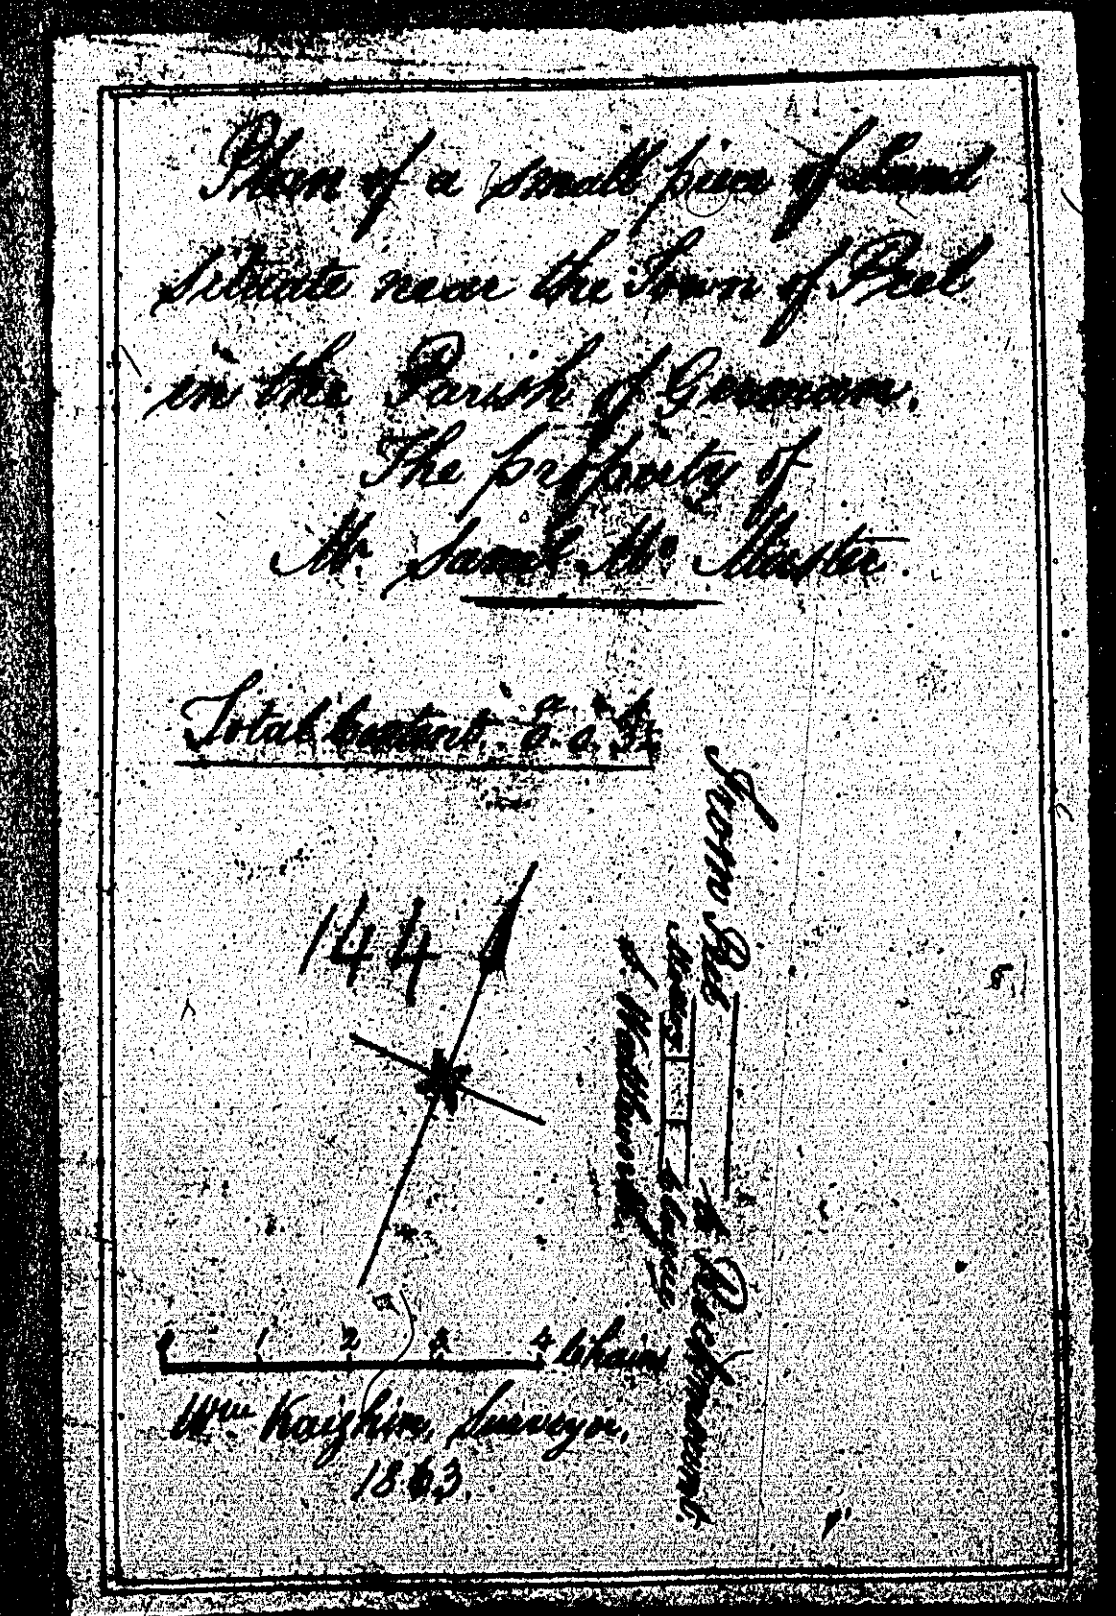 Plan of a small piece of Land
situate near the Town of Peel
in the Parish of German.
The property of
Mr. Saml. Mc Master.
a. r. p.
Total Content 0. 0.
144
From Peel
to Peckmount.
0 1 2 3 4 Chains
Wm. Kaighin, Surveyor.
1863.